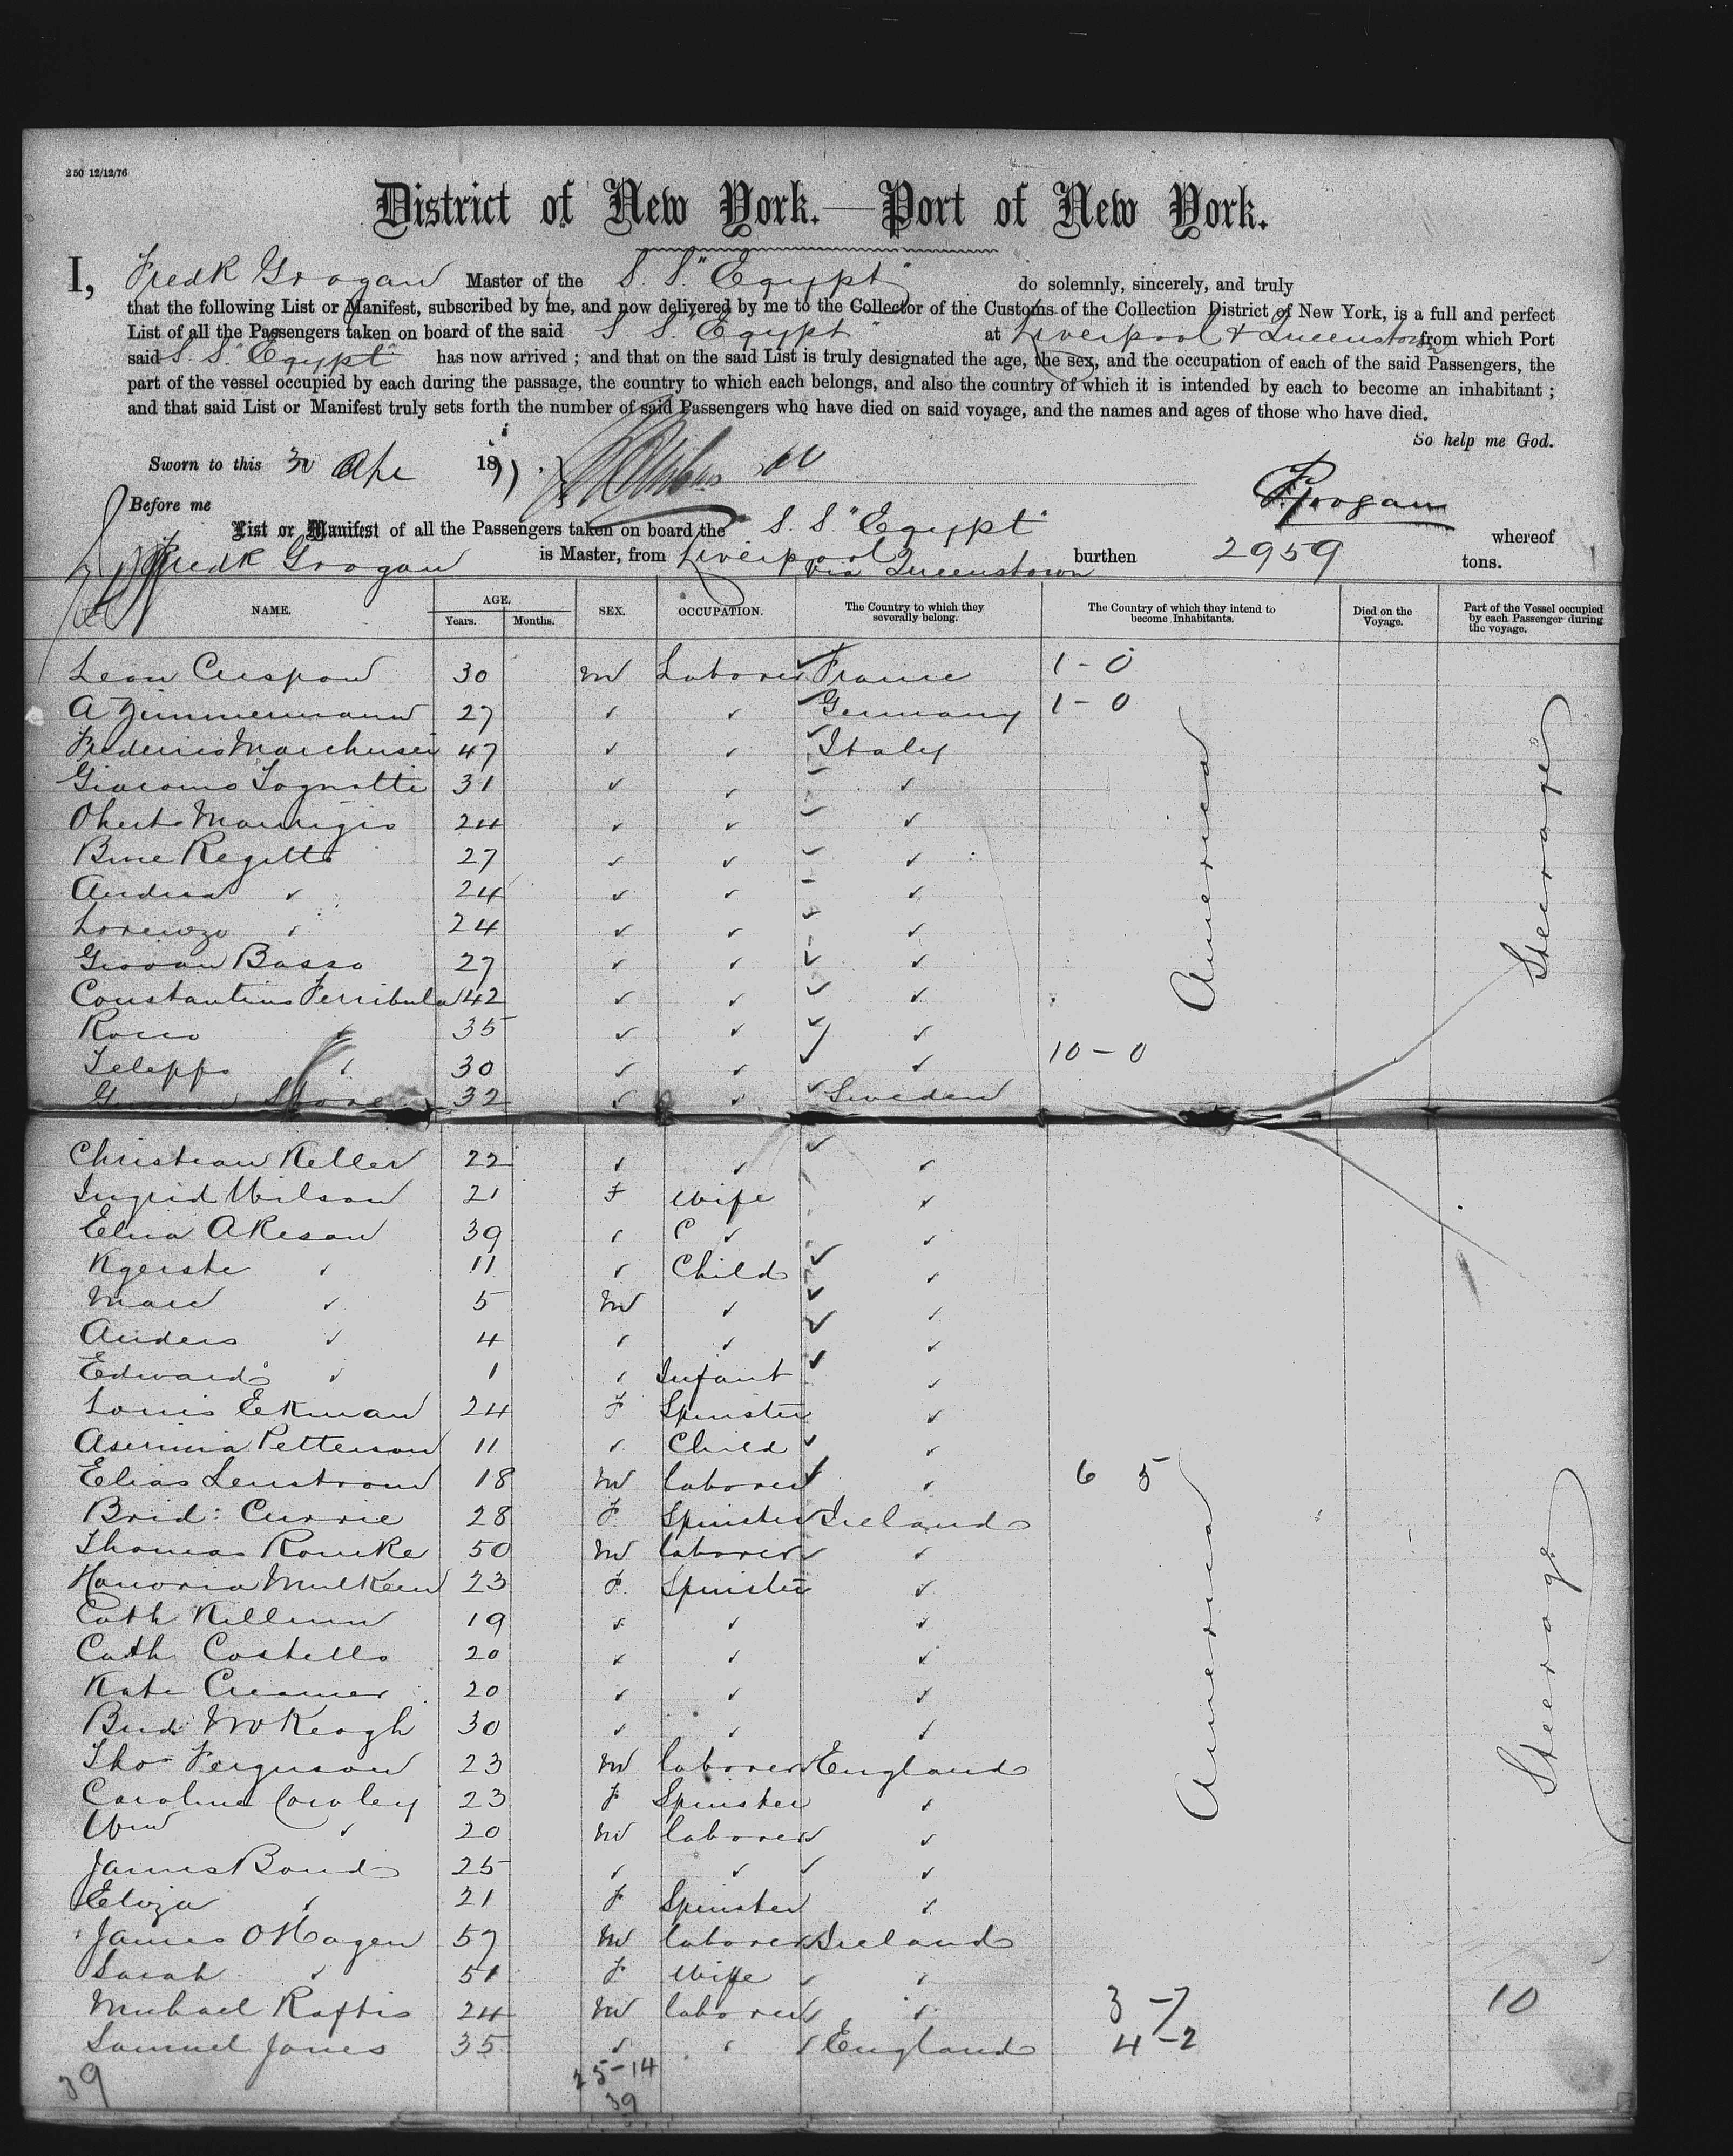 250 12/12/76
District of New York.—Port of New York.
I, Fredk Grogan Master of the S. S. "Egypt" do solemnly, sincerely, and truly
that the following List or Manifest, subscribed by me, and now delivered by me to the Collector of the Customs of the Collection District of New York, is a full and perfect
List of all the Passengers taken on board of the said S S. "Egypt" at Liverpool & Queenstown from which Port
said S. S. "Egypt" has now arrived ; and that on the said List is truly designated the age, the sex, and the occupation of each of the said Passengers, the
part of the vessel occupied by each during the passage, the country to which each belongs, and also the country of which it is intended by each to become an inhabitant ;
and that said List or Manifest truly sets forth the number of said Passengers who have died on said voyage, and the names and ages of those who have died.
So help me God.
Sworn to this 30 Apr 1877.
Before me F. Grogan
List or Manifest of all the Passengers taken on board the S. S. "Egypt" whereof
Fredk Grogan is Master, from Liverpool via Queenstown burthen 2959 tons.
NAME. AGE. Years. Months. SEX. OCCUPATION. The Country to which they severally belong. The Country of which they intend to become Inhabitants. Died on the Voyage. Part of the Vessel occupied by each Passenger during the voyage.
Leon 30 M Laborer France 1-0
A Zimmermann 27 ✓ ✓ Germany 1-0
47 ✓ ✓ Italy
Giacomo Tognotti 31 ✓ ✓ ✓
24 ✓ ✓ ✓
27 ✓ ✓ ✓
Andrea ✓ 24 ✓ ✓ ✓
Lorenzo ✓ 24 ✓ ✓ ✓
Giovan Basso 27 ✓ ✓ ✓
Constantino 42 ✓ ✓ ✓
Rocco ✓ 35 ✓ ✓ ✓
✓ 30 ✓ ✓ ✓ 10-0
32 ✓ ✓ Sweden
America
Steerage
Christian Keller 22 ✓ ✓ ✓
Ingrid Wilson 21 F Wife ✓
Elna Akeson 39 ✓ ✓ ✓
✓ 11 ✓ Child ✓
✓ 5 M ✓ ✓
Anders ✓ 4 ✓ ✓ ✓
Edward ✓ 1 ✓ Infant ✓
Louis Ekman 24 F Spinster ✓
Petterson 11 ✓ Child ✓
Elias Lenstrom 18 M laborer ✓ 6 5
Brid: Currie 28 F Spinster Ireland
Thomas Rourke 50 M laborer ✓
Honoria Mulkern 23 F Spinster ✓
Cath 19 ✓ ✓ ✓
Cath Costello 20 ✓ ✓ ✓
Kate Creamer 20 ✓ ✓ ✓
Brid McKeogh 30 ✓ ✓ ✓
Tho Ferguson 23 M laborer England
Caroline Cowley 23 F Spinster ✓
Wm ✓ 20 M laborer ✓
James Bond 25 ✓ ✓ ✓
Eliza ✓ 21 F Spinster ✓
James O Hagen 57 M laborer Ireland
Sarah ✓ 51 F Wife ✓
Michael Raftis 24 M laborer ✓ 3-7 10
Samuel Jones 35 ✓ ✓ England 4-2
America
Steerage
39 25-14
39